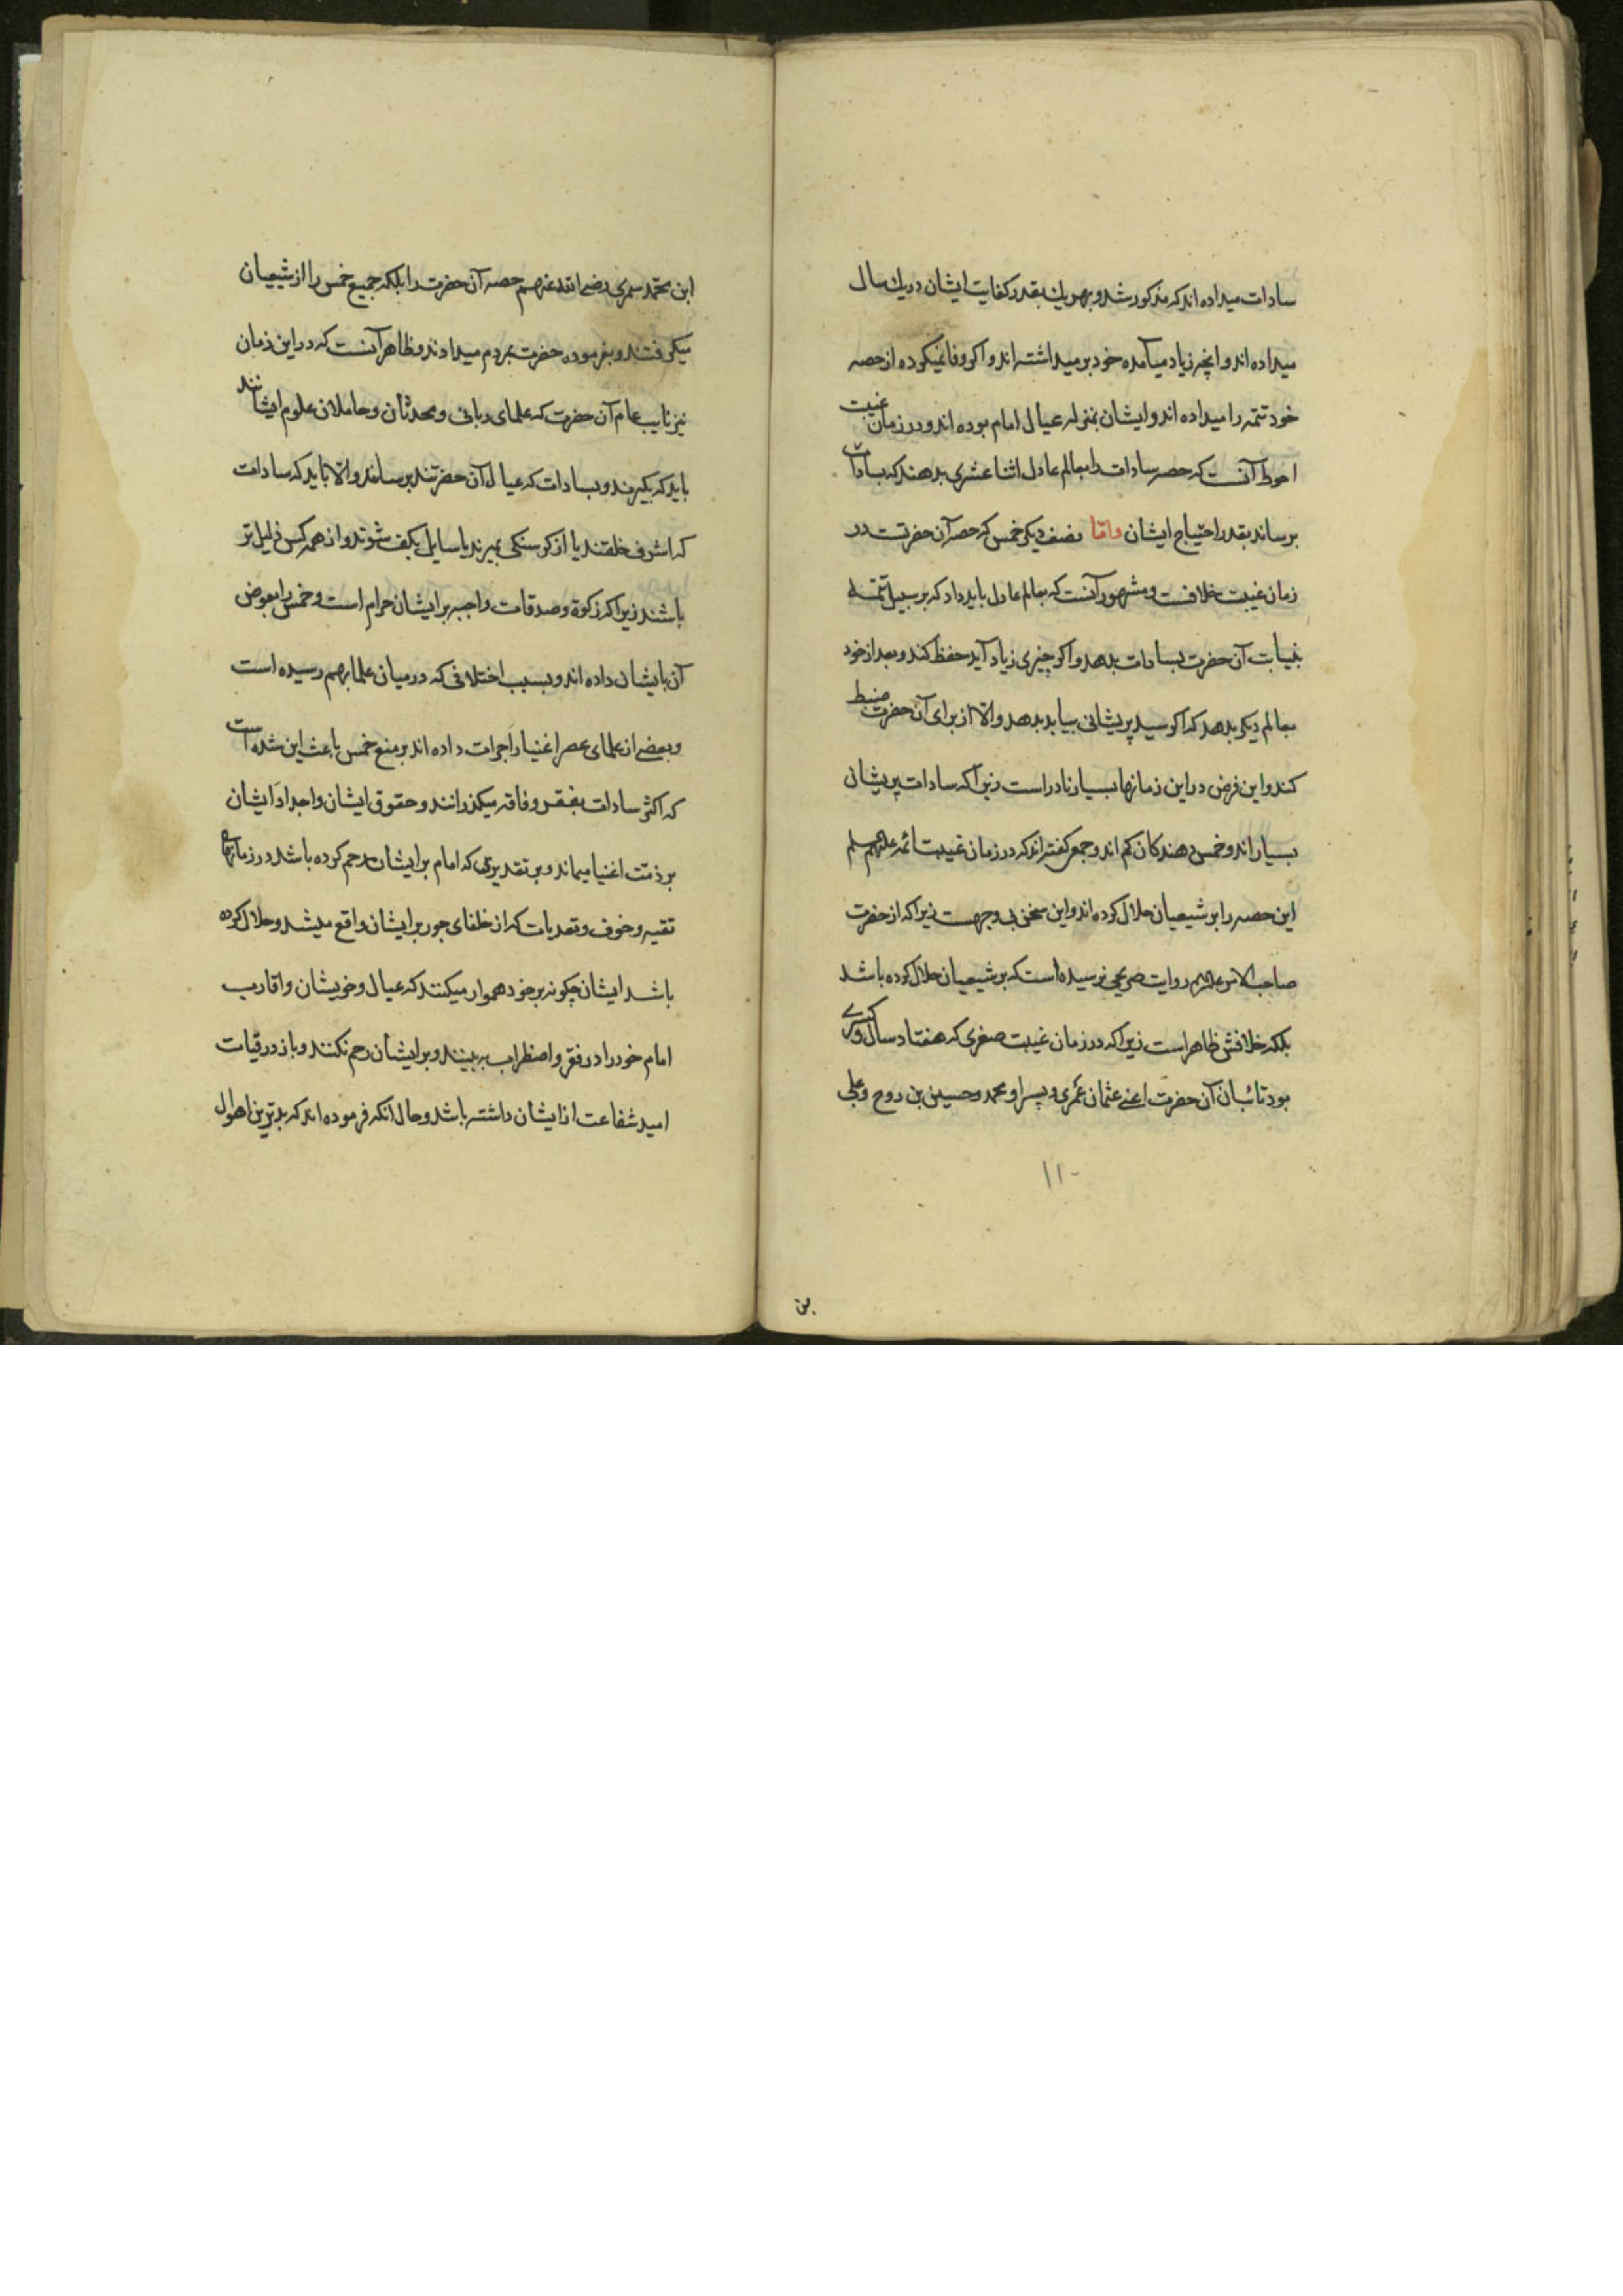 سادات میداده اند که مذکور شد و بهر یك بقدر کفایت ایشان در یك سال
میداده اند و انچه زیاد میآمده خود برمیداشته اند و اکر وفا نمیکرده از حصه
خود تتمه را میداده اند و ایشان بمنزله عیال امام بوده اند و در زمان غیبت
احوط آنست که حصه سادات را بعالم عادل اثنا عشری بدهند که بسادات
برساند بقدر احتیاج ایشان واما نصف دیکر خمس که حصه آن حضرتست در
زمان غیبت خلافست و مشهور آنست که بعالم عادل باید داد که بر سبیل تتمه
بنیابت آن حضرت بسادات بدهد و اکر چیزی زیاد آید حفظ کند و بعد از خود
بعالم دیکر بدهد که اکر سید پریشانی بیابد بدهد والا از برای آن حضرت ضبط
کند و این فرض در این زمانها بسیار نادر است زیرا که سادات پریشان
بسیار اند و خمس دهندکان کم اند و جمعی کفته اند که در زمان غیبت ائمه علیهم سلم
این حصه را بر شیعیان حلال کرده اند و این سخن بی وجهست زیرا که از حضرت
صاحب الامر روایت صریحی نرسیده است که بر شیعیان حلال کرده باشد
بلکه خلافش ظاهر است زیرا که در زمان غیبت صغری که هفتاد سال و کسری
بود نائبان آن حضرت اعنی عثمان عمری و پسر او محمد و حسین بن روح و علی
۱۱۰
بن
ابن محمد سمری رضی الله عنهم حصه آن حضرت را بلکه جمیع خمس را از شیعیان
میکرفتند و بفرموده حضرت بمردم میدادند و ظاهر آنست که در این زمان
نیز نایب عام آن حضرت که علمای ربانی و محدثان و حاملان علوم ایشانند
باید که بکیرند و بسادات که عیال آن حضرتند برسانند والا باید که سادات
که اشرف خلقند یا از کرسنکی بمیرند یا سایل بکف شوند و از همه کس ذلیل تر
باشند زیرا که زکوة و صدقات واجبه بر ایشان حرام است و خمس را بعوض
آن بایشان داده اند و بسبب اختلافی که در میان علما بهم رسیده است
و بعضی از علمای عصر اغنیا را جرات داده اند بر منع خمس باعث این شده است
که اکثر سادات بفقر و فاقه میکذرانند و حقوق ایشان و اجداد ایشان
بر ذمت اغنیا میماند و بر تقدیری که امام بر ایشان رحم کرده باشد در زمانهای
تقیه و خوف و تعدیات که از خلفای جور بر ایشان واقع میشد و حلال کرده
باشد ایشان چکونه بر خود هموار میکنند که عیال و خویشان و اقارب
امام خود را در فقر و اضطراب به بینند و بر ایشان رحم نکنند و باز در قیامت
امید شفاعت از ایشان داشته باشد و حال آنکه فرموده اند که بدترین احوال